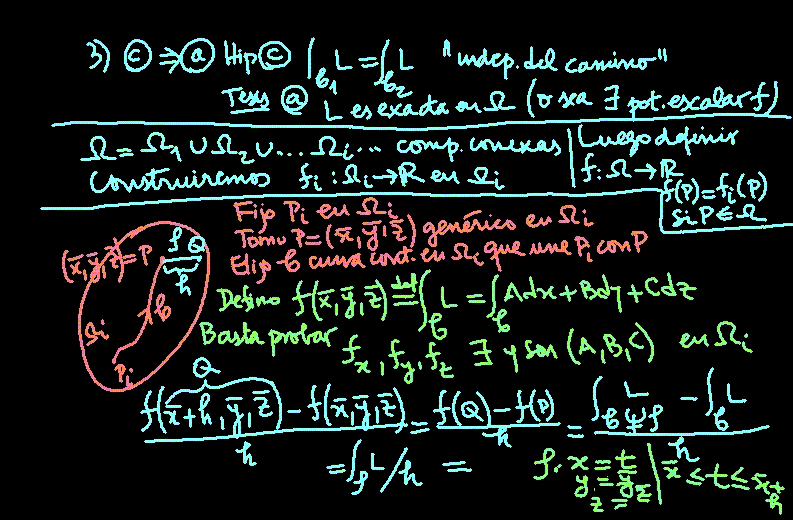 3) ⓒ ⇒ ⓐ Hip ⓒ ∫_{𝒞1} L = ∫_{𝒞2} L "indep. del camino"
Tesis ⓐ L es exacta en Ω (o sea ∃ pot. escalar f)
Ω = Ω1 ∪ Ω2 ∪ .... Ωi ... comp. conexas
Construiremos fi : Ωi → ℝ en Ωi
Luego definir
f: Ω → ℝ
f(P) = fi(P)
si P ∈ Ω
Fijo Pi en Ωi
Tomo P = (x̄, ȳ, z̄) genérico en Ωi
Elijo 𝒞 curva cont. en Ωi que une Pi con P
(x̄, ȳ, z̄) = P ρ Q
h
𝒞
Ωi
Pi
Defino f(x̄, ȳ, z̄) ≝ ∫_𝒞 L = ∫_𝒞 Adx + Bdy + Cdz
Basta probar
fx, fy, fz ∃ y son (A, B, C) en Ωi
Q
(f(x̄+h, ȳ, z̄) - f(x̄, ȳ, z̄))/h = (f(Q) - f(P))/h = (∫_{𝒞 ∪ ρ} L - ∫_𝒞 L)/h
= ∫_ρ L/h =
ρ. x = t | x̄ ≤ t ≤ x̄+h
y = ȳ
z = z̄